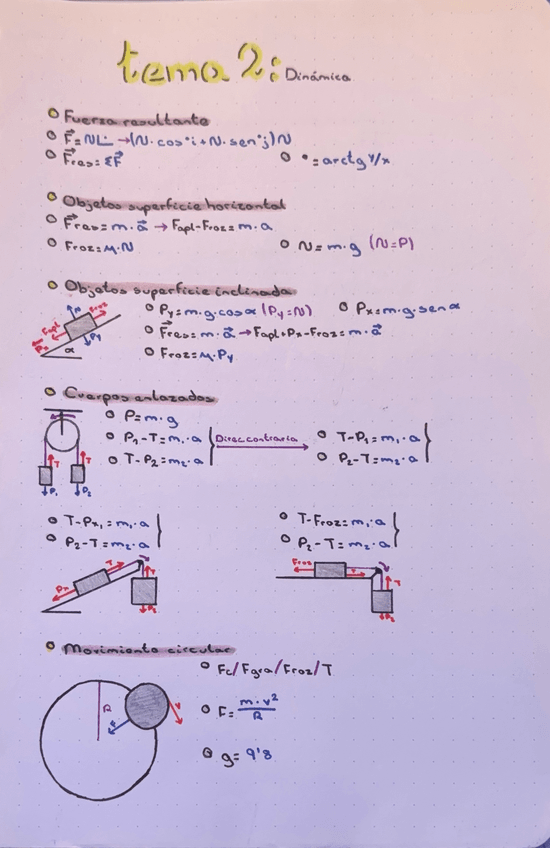 tema 2: Dinámica
Fuerza resultante
F⃗=N∟° →(N·cos°i+N·sen°j)N
F⃗res=ΣF⃗
°=arctg y/x
Objetos superficie horizontal
F⃗res=m·a⃗ → Fapl-Froz=m·a
Froz=μ·N
N=m·g (N=P)
Objetos superficie inclinada
Py=m·g·cosα (Py=N)
Px=m·g·senα
F⃗res=m·a⃗ → Fapl+Px-Froz=m·a⃗
Froz=μ·Py
N
Froz
Fapl
Px
Py
α
Cuerpos enlazados
P=m·g
P₁-T=m₁·a
T-P₂=m₂·a
Direc contraria
T-P₁=m₁·a
P₂-T=m₂·a
T
T
P₁
P₂
T-Px₁=m₁·a
P₂-T=m₂·a
T-Froz=m₁·a
P₂-T=m₂·a
T
Px
T
P₂
Froz
T
T
P₂
Movimiento circular
Fc/Fgra/Froz/T
F=m·v²/R
g=9'8
R
F
v